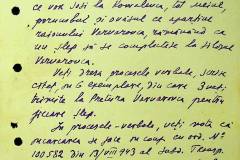 ce vor sosi la Kowaleuca, tot meiul,
porumbul și ovăsul ce aparține
raionului Vervarovca, rămânând ca
un slep să se completeze la Staraia
Vervarovca.
Veți dresa procesele verbale, scrise
citeț, în 6 exemplare, din care 3 veți
trimite la Pretura Varvarovca pentru
fiecare slep.
În procesele-verbale, veți nota că
încărcarea se face în comp. cu ord. N°
100.552 din 13/VIII 943 al Subd. Transp.